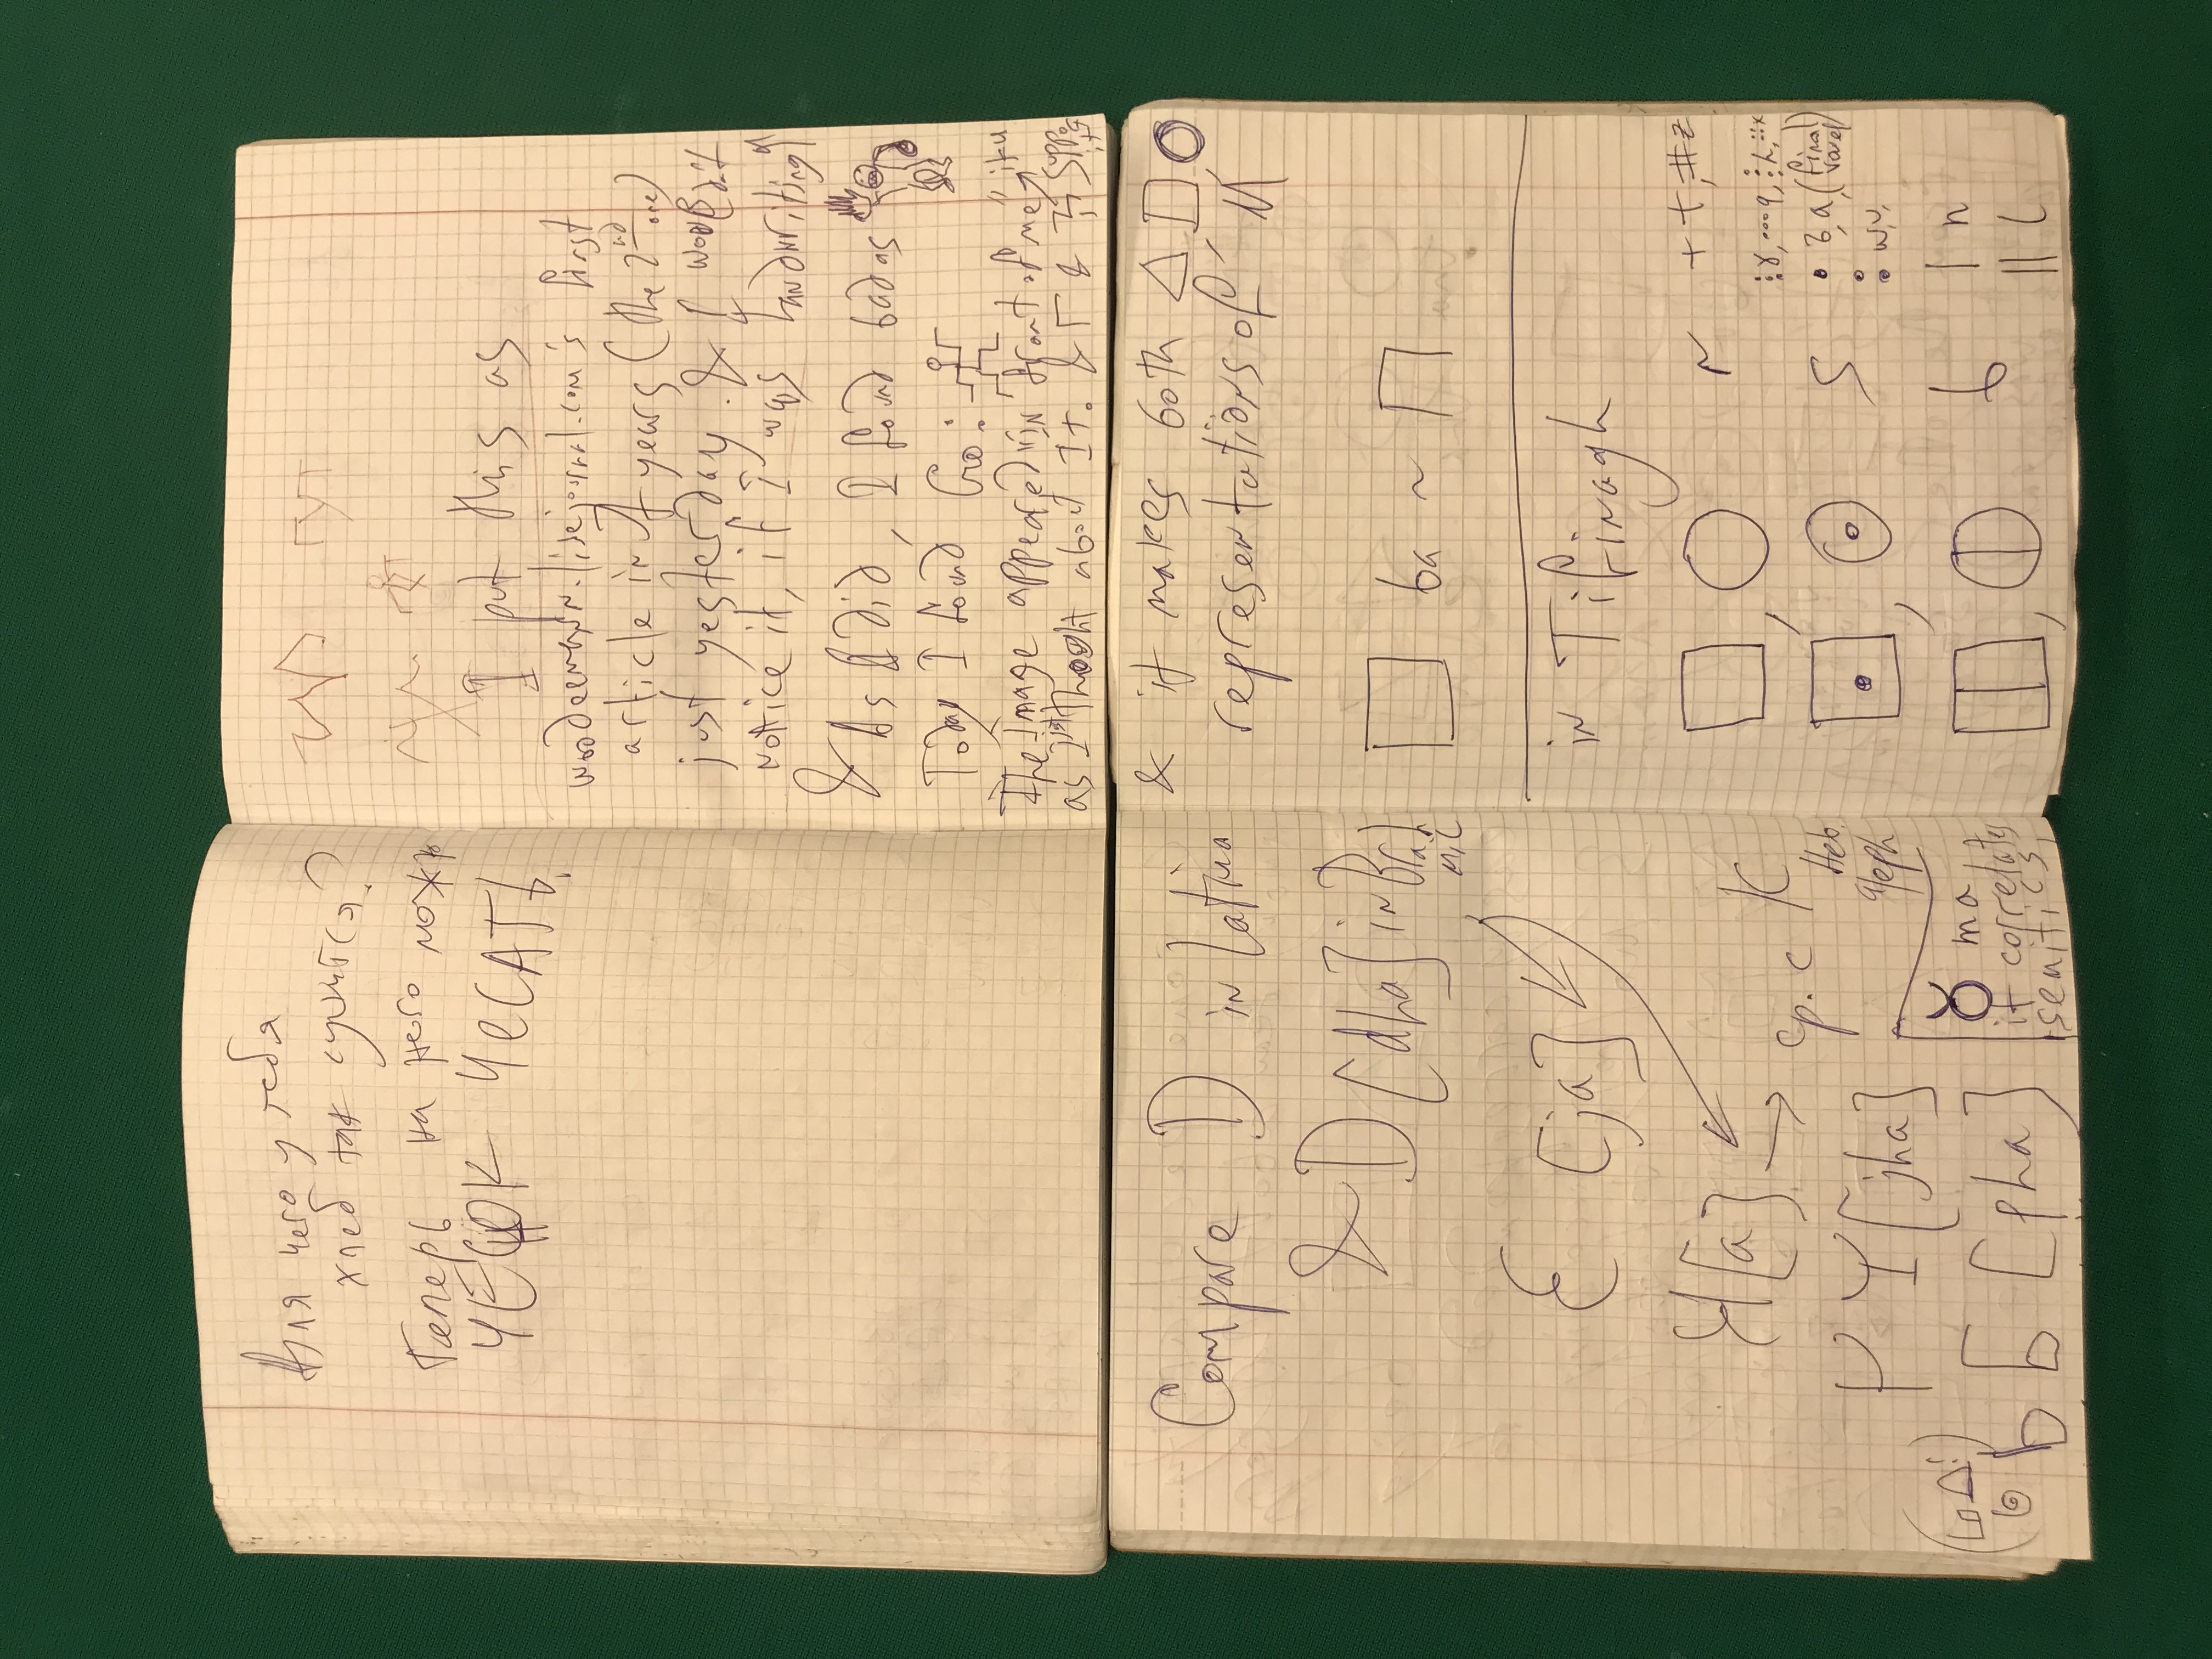 Для чего у тебя
хлеб так сушится?
Теперь на него можно
ЧЕСНОК ЧЕСАТЬ!
ТУТ
I put this as
woodeemann.livejournal.com's first
article in 7 years (the 2nd one)
just yesterday. & I wouldn't
notice it, if I was handwriting
& As I did, I found bad as
Today I found Gro:
The Image appeared in front of me
as I just thought about It. & Г &
Compare D in latina
& D [dha] in Brahmic
Ɛ [ja]
[a]
→ ср. с K
Heb. aleph
Y [jha]
Ь Б [pha]
♉ ma
it correlates
semitics,
& it makes both △, □, O
representations of M
□ ba ~ П
in Tifinagh
□, ○ r
+ t, # z
⊡, ⊙ s
• a, (final vowel)
: w, u,
b
| n
|| l